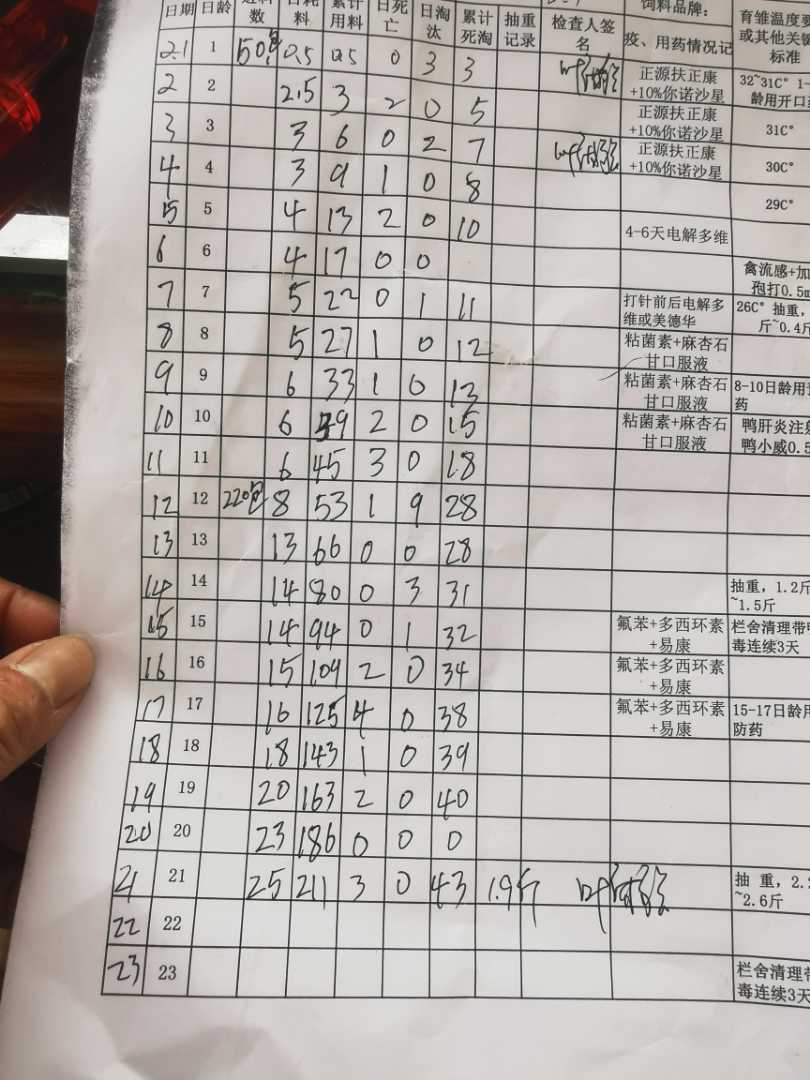 饲料品牌：
日期 日龄 进料数 日耗料 累计用料 日死亡 日淘汰 累计死淘 抽重记录 检查人签名 疫、用药情况记 育雏温度要 或其他关键 标准
2.1 1 50包 0.5 0.5 0 3 3 正源扶正康+10%你诺沙星 32~31C° 1- 龄用开口药
2 2 2.5 3 2 0 5 正源扶正康+10%你诺沙星
3 3 3 6 0 2 7 正源扶正康+10%你诺沙星 31C°
4 4 3 9 1 0 8 30C°
5 5 4 13 2 0 10 4-6天电解多维 29C°
6 6 4 17 0 0 禽流感+加 孢打0.5m
7 7 5 22 0 1 11 打针前后电解多维或美德华 26C° 抽重， 斤~0.4斤
8 8 5 27 1 0 12 粘菌素+麻杏石甘口服液
9 9 6 33 1 0 13 粘菌素+麻杏石甘口服液 8-10日龄用 药
10 10 6 39 2 0 15 粘菌素+麻杏石甘口服液 鸭肝炎注射 鸭小威0.5
11 11 6 45 3 0 18
12 12 220包 8 53 1 9 28
13 13 13 66 0 0 28
14 14 14 80 0 3 31 抽重，1.2斤 ~1.5斤
15 15 14 94 0 1 32 氟苯+多西环素+易康 栏舍清理带 毒连续3天
16 16 15 109 2 0 34 氟苯+多西环素+易康
17 17 16 125 4 0 38 氟苯+多西环素+易康 15-17日龄用 防药
18 18 18 143 1 0 39
19 19 20 163 2 0 40
20 20 23 186 0 0 0
21 21 25 211 3 0 43 1.9斤 抽 重，2.2 ~2.6斤
22 22
23 23 栏舍清理带 毒连续3天